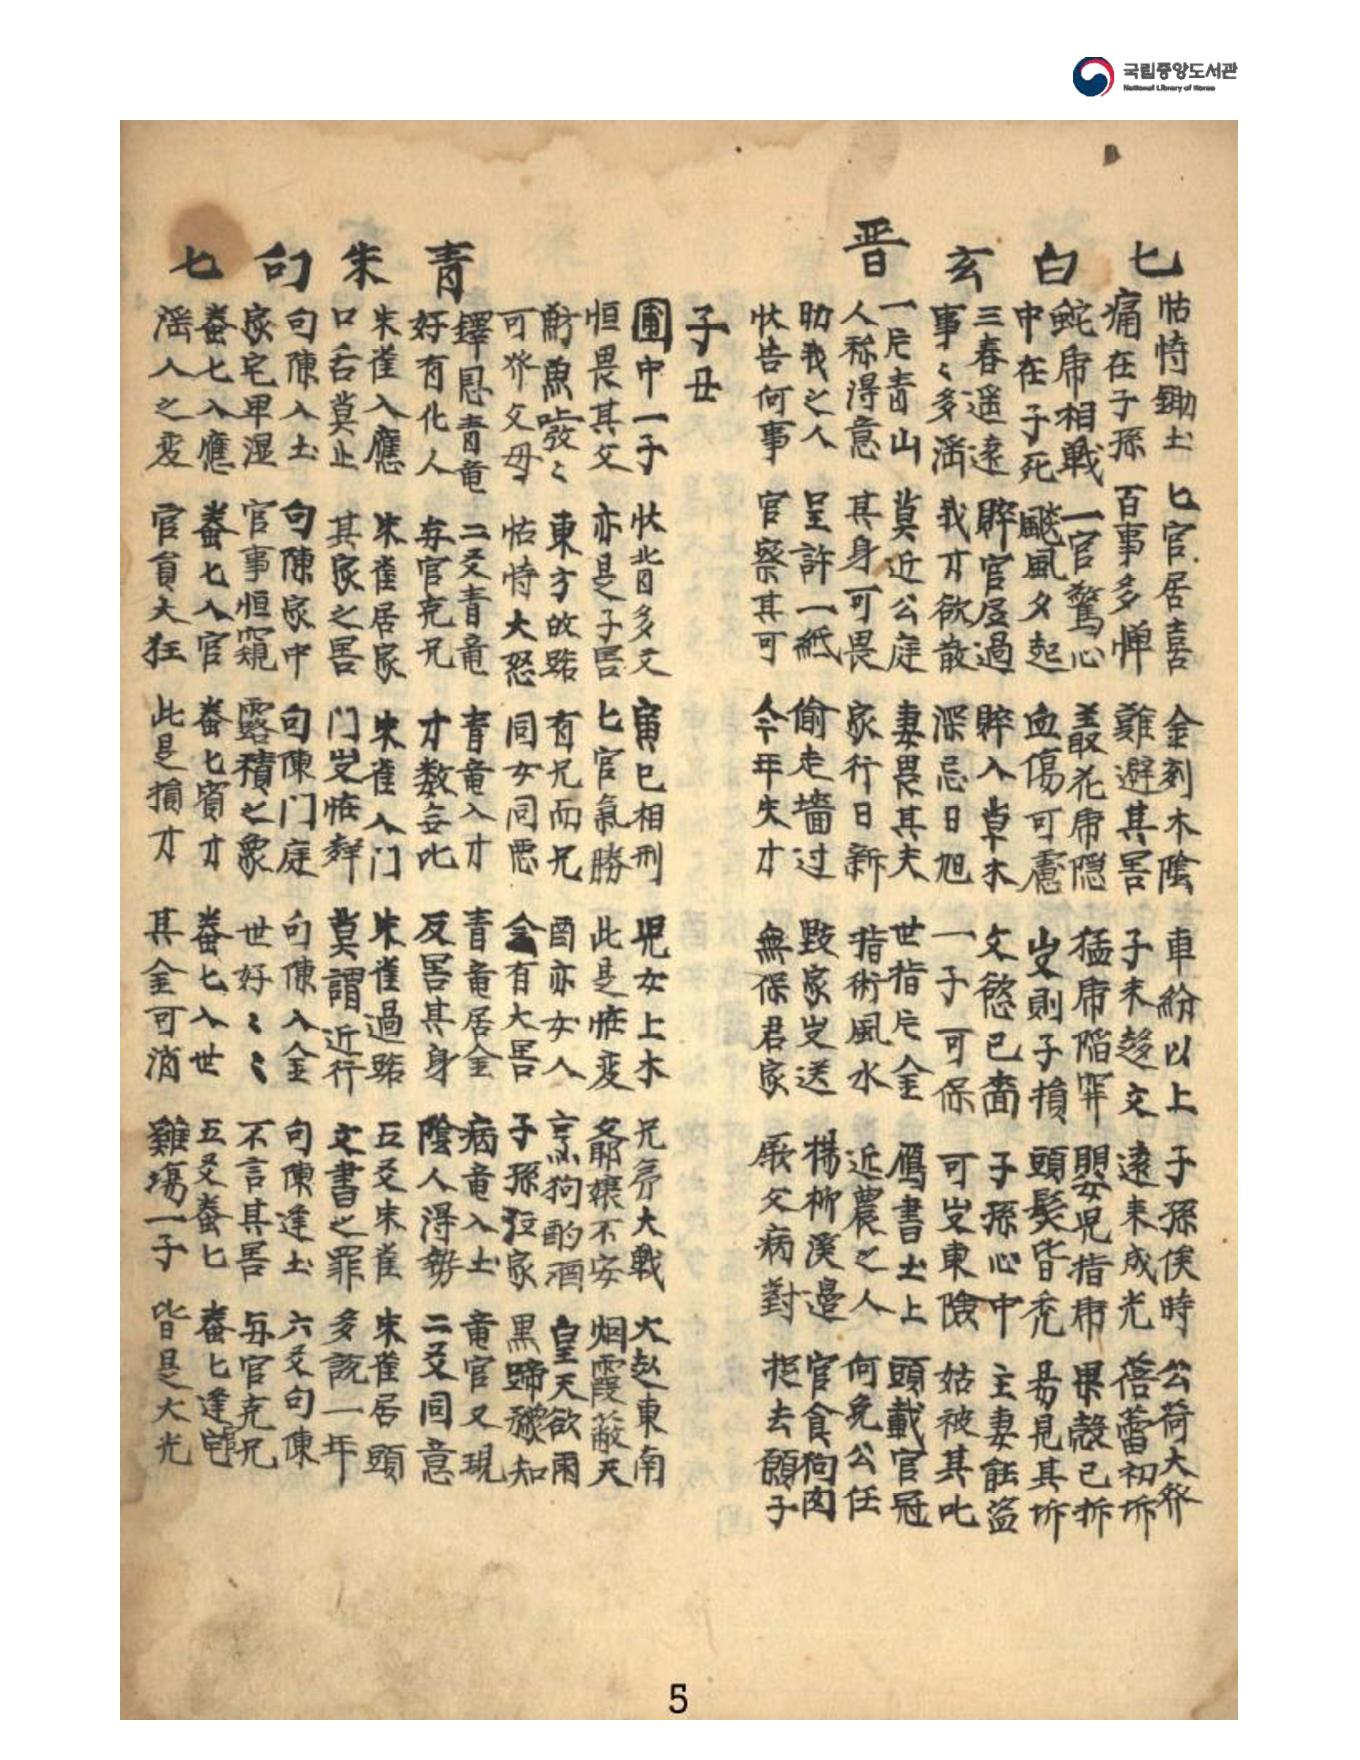 국립중앙도서관
National Library of Korea
匕
怙恃鋤土 匕官居喜 金刻木陰 車紛以上 子孫俟時 公荷大癸
痛在子孫 百事多憚 難避其害 子未趍文 遠来成光 蓓蕾初坼
白
席相戦 一官驚心 叢花席隠 猛席陷穽 嬰児指席 果殻已拆
中在子死 飈風夕起 血傷可慮 则子損 頭髪皆禿 易見其坼
玄
三春遥遠 官屋過 入草木 文慾已 子孫心中 主妻飪盜
事〻多滛 我才欲散 深忌日旭 一子可保 可 東險 姑被其叱
晋
一片青山 莫近公庭 妻畏其夫 世指片金 鴈書土上 頭載官冠
人称得意 其身可畏 家行日新 指術風水 近農之人 何免公任
助我之人 呈許一紙 偷走墙过 毀家 送 楊柳溪邊 官食狗肉
伏告何事 官察其可 今年失才 無保君家 厥父病對 挺去顧子
子丑
圃中一子 伏背多文 寅巳相刑 児女上木 兄弟大戦 火赴東南
恒畏其父 亦是子害 匕官氣勝 此是怪変 爺嬢不安 烟霞蔽天
魴魚 〻 東方故 有兄而兄 酉亦女人 烹狗酌酒 皇天欲雨
可癸父母 怙恃大怒 同女同悪 金有大害 子孫 家 黒蹄 知
青
鐸恩青竜 二爻青竜 青竜入才 青竜居金 病竜入土 竜官又現
好有化人 与官克兄 才数每此 反害其身 陰人得勢 二爻同意
朱
朱雀入應 朱雀居家 朱雀入门 朱雀過路 五爻朱雀 朱雀居頭
口舌莫止 其家之害 门 怪 莫謂近行 文書之罪 多説一年
句
句陳入土 句陳家中 句陳门庭 句陳入金 句陳逢土 六爻句陳
家宅卑湿 官事恒窺 露積之象 世好〻〻 不言其害 与官克兄
匕
蚕匕入應 蚕匕入官 蚕匕賓才 蚕匕入世 五爻蚕匕 蚕匕逢
滛人之変 官貟大狂 此是損才 其金可消 雞塲一子 皆是大光
5